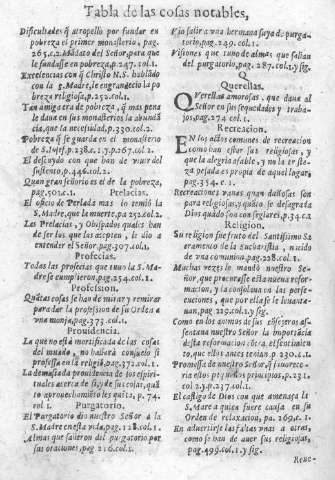 Tabla de las cosas notables,
Dificultades q̃ atropello por fundar en
pobreza el primer monasterio, pag.
263.c.2. Mãdato del Señor para que
le fundasse en pobreza, p.247. col.1.
Excelencias con q̃ Christo N.S. hablado
con la S. Madre, le engrandecio la po
breza religiosa, p.252.col.1.
Tan amiga era de pobreza, q̃ mas pena
le daua en sus monasterios la abundã
cia, que la necesidad, p.330.col.2.
Pobreza q̃ se guarda en el monasterio
de S. Iosef. p.238.c.1. y p.267.col.2.
El descuydo con que han de viuir del
sustento, p.446.col.2.
Quan gran señorio es el de la pobreza,
pag.501.c.1.
Prelacias.
El oficio de Perlada mas lo temiò la
S. Madre, que la muerte, pa 252.col.2.
Las Prelacias, y Obispados quales han
de ser los que las aceptan, se dio a
entender el Señor. pag.307.col.1.
Profecias.
Todas las profecias que tuuo la S. Ma
dre se cumplieron, pag.254.col.1.
Professiones.
Quãtas cosas se han de mirar y remirar
para dar la profession de su Orden a
vna monja, pag.373.col.1.
Prouidencia.
La que no està mortificada de las cosas
del mundo, no hallarà consuelo si
professa en la religiõ, pag.372.col.1.
La demasiada prouidencia de los espiri-
tuales acerca de si, y de sus cosas, quã
to aprouechamiẽto les quita, p. 74.
col 1.
Purgatorio.
El Purgatorio dio nuestro Señor a la
S. Madre en esta vida, pag.128.col.1.
Almas que salieron del purgatorio por
sus oraciones, pag 216.col.1.
Vio salir a vna hermana suya de purga-
torio, pag.249.col.1.
Visiones que tuuo de almas que salian
del purgatorio, pag. 287.col.1.y sig.
Q
Querellas.
QVerellas amorosas, que daua al
Señor en sus sequedades y traba-
jos, pag.274 col.1.
Recreacion.
EN los actos comunes de recreacion
como han estar sus religiosas, y
que la alegria afable, y no la triste-
za pesada es propia de aquel lugar,
pag.354.c.1.
Recreaciones vanas quan dañosas son
para religiosas, y quãto se desagrada
Dios quãdo son con seglares, p.34 c.2
Religion.
Su religion fue fruto del Santissimo Sa
cramento de la Eucharistia, nacido
de vna comunion, pag.228.col.1.
Muchas vezes le mandò nuestro Se-
ñor, que procurasse esta nueua refor-
macion, y la consolaua en las perse-
cuciones, que por ella se le leuanta-
uan, pag.229.col.1.y sig.
Como en los animos de sus cõsejeros as-
sentaua nuestro Señor la importãcia
desta reformacion cõtra, el sentimien-
to, que ellos antes tenian. p 230.c.1.
Promessa de nuestro Señor, q̃ hizo a es-
tos peq̃ños principios, p.231.
col 2.y p.237.col.1.
El castigo de Dios con que amenaça la
S. Madre a quien fuere causa en su
Orden de relaxacion, pa. 269.c. 1.
En aduertirse las faltas vnas a otras,
como se han de auer sus religiosas,
pag.499.col.1.y sig.
Reue-